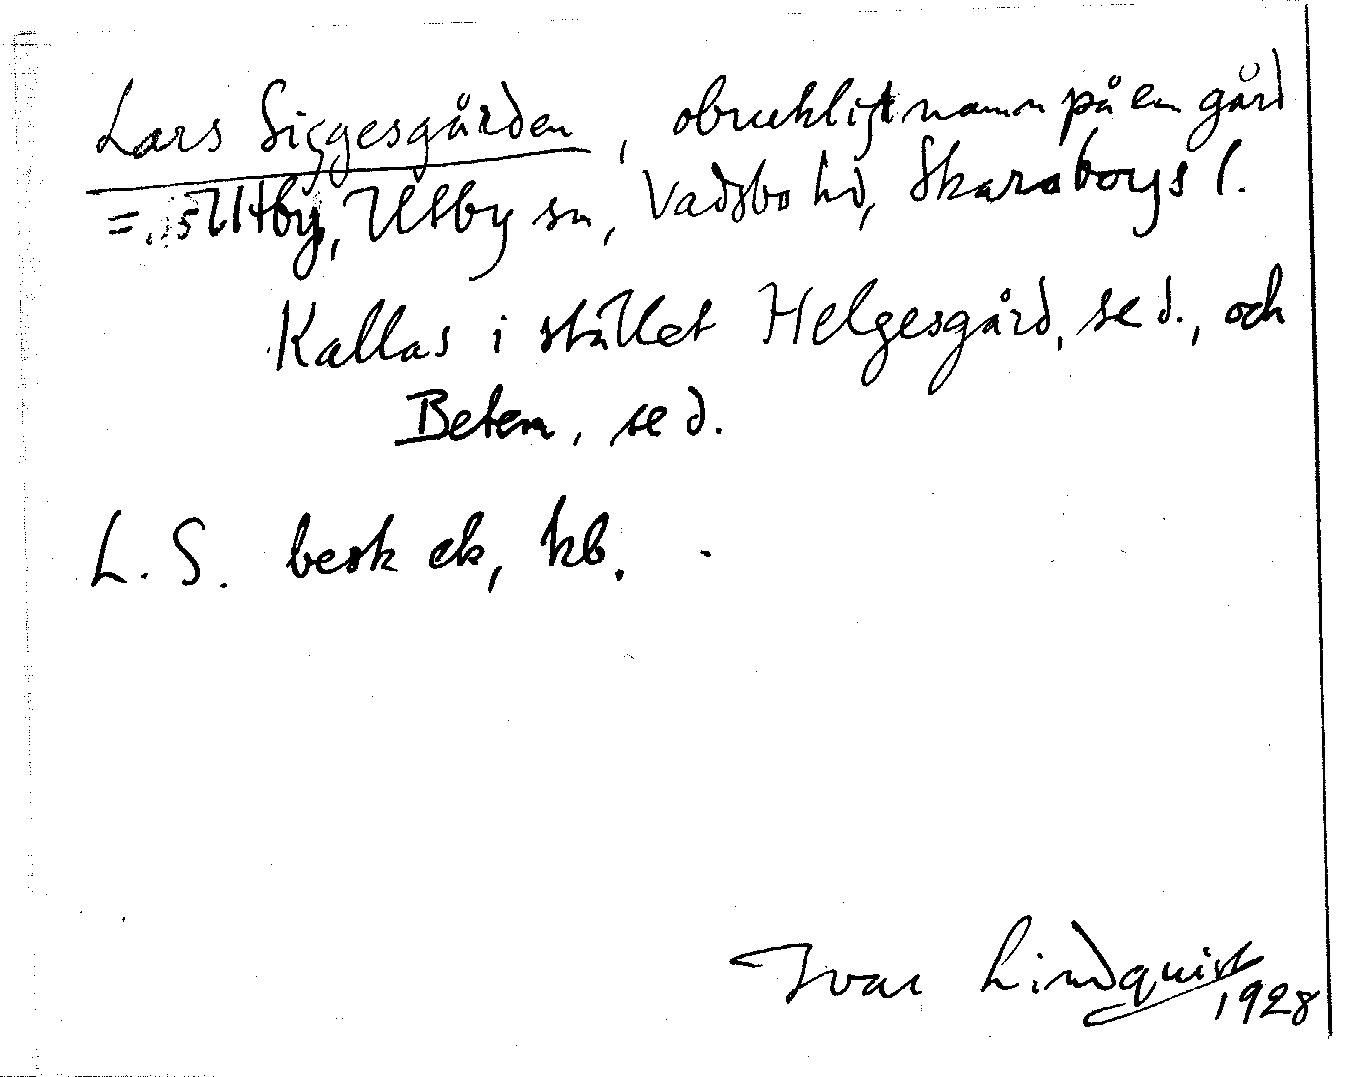 Lars Siggesgården, obrukligt namn på en gård
= 5 Utby, Utby sn, Vadsbo hd, Skaraborgs l.
Kallas i stället Helgesgård, se d., och
Beten, se d.
L. S. besk ek, kb.
Ivar Lindquist
1928